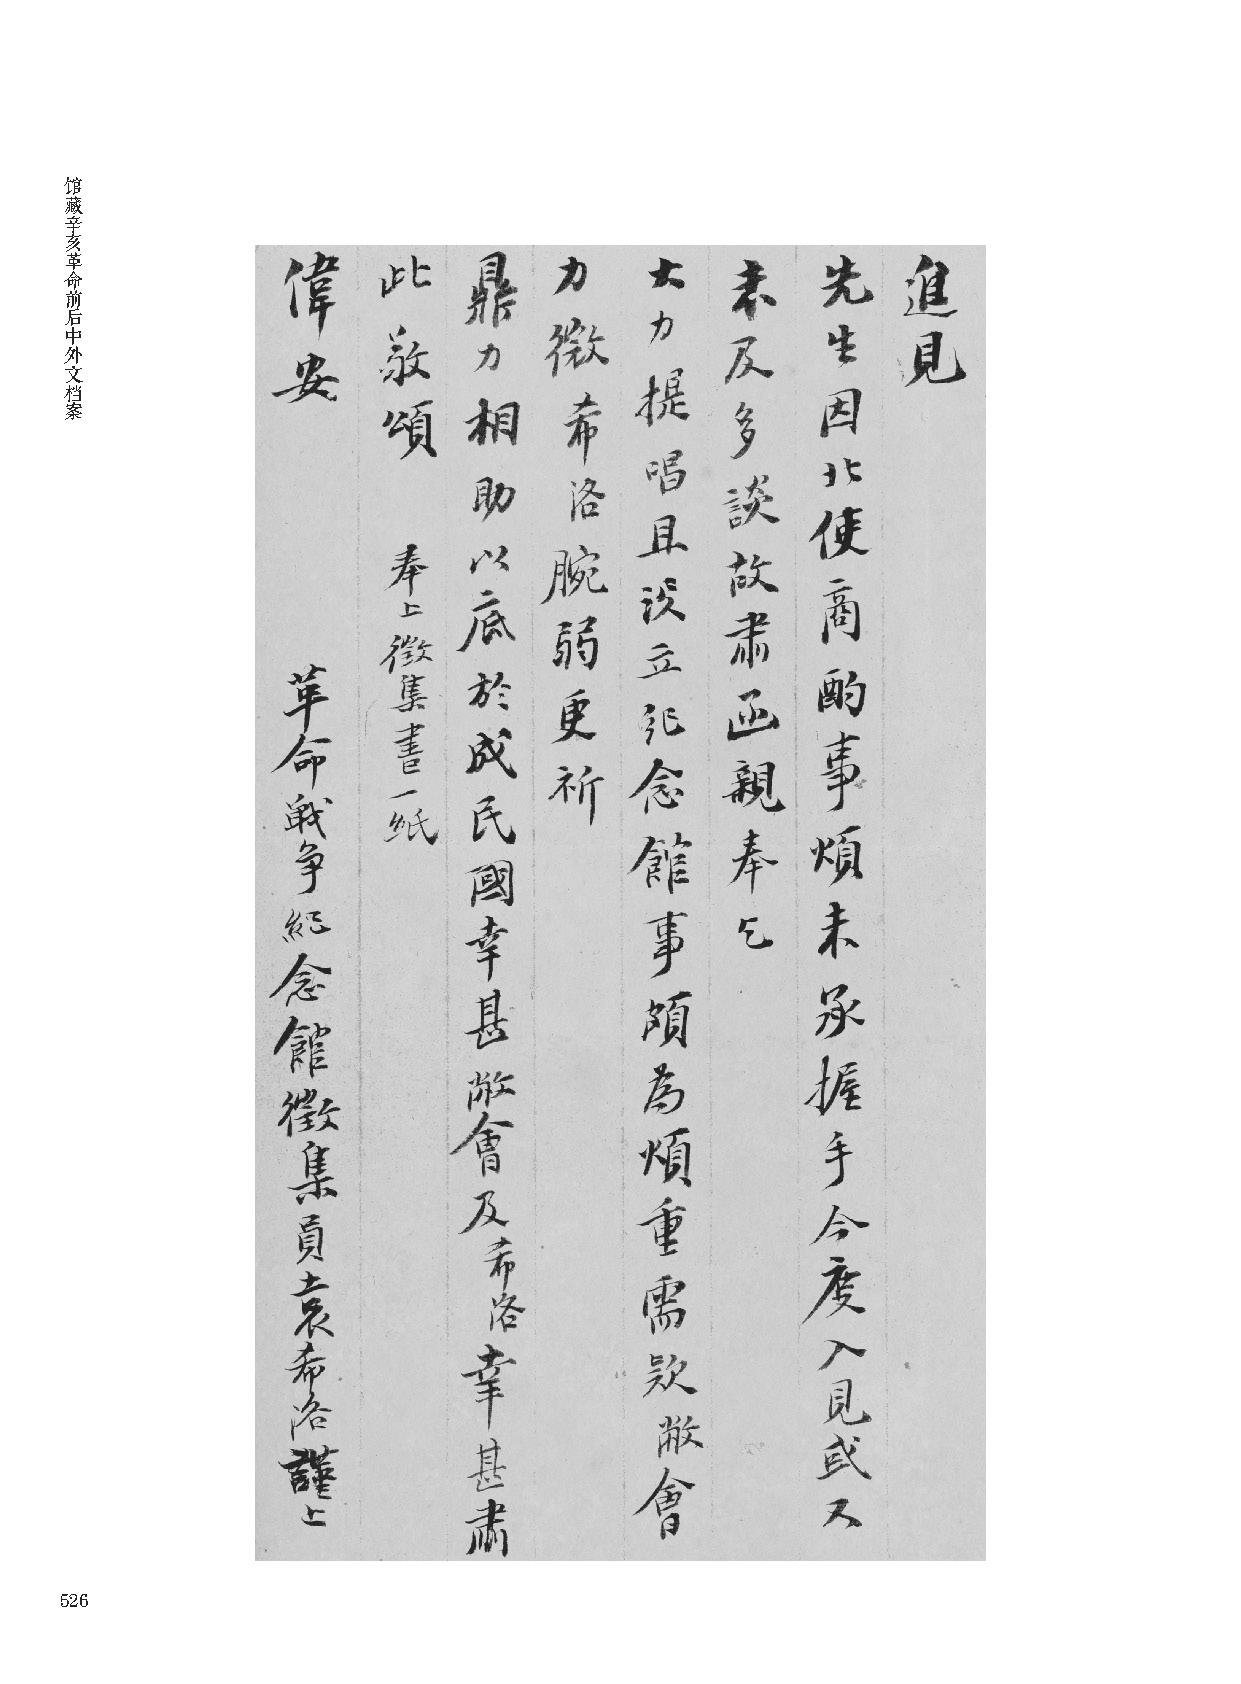 馆藏辛亥革命前后中外文档案
進見
先生因北使商酌事煩未承握手今度入見或又
未及多談故肅函親奉乞
大力提唱且設立紀念館事頗為煩重需款敝會
力微希洛腕弱更祈
鼎力相助以底於成民國幸甚敝會及希洛幸甚肅
此敬頌　奉上徵集書一紙
偉安
革命戰争紀念館徵集員袁希洛謹上
526